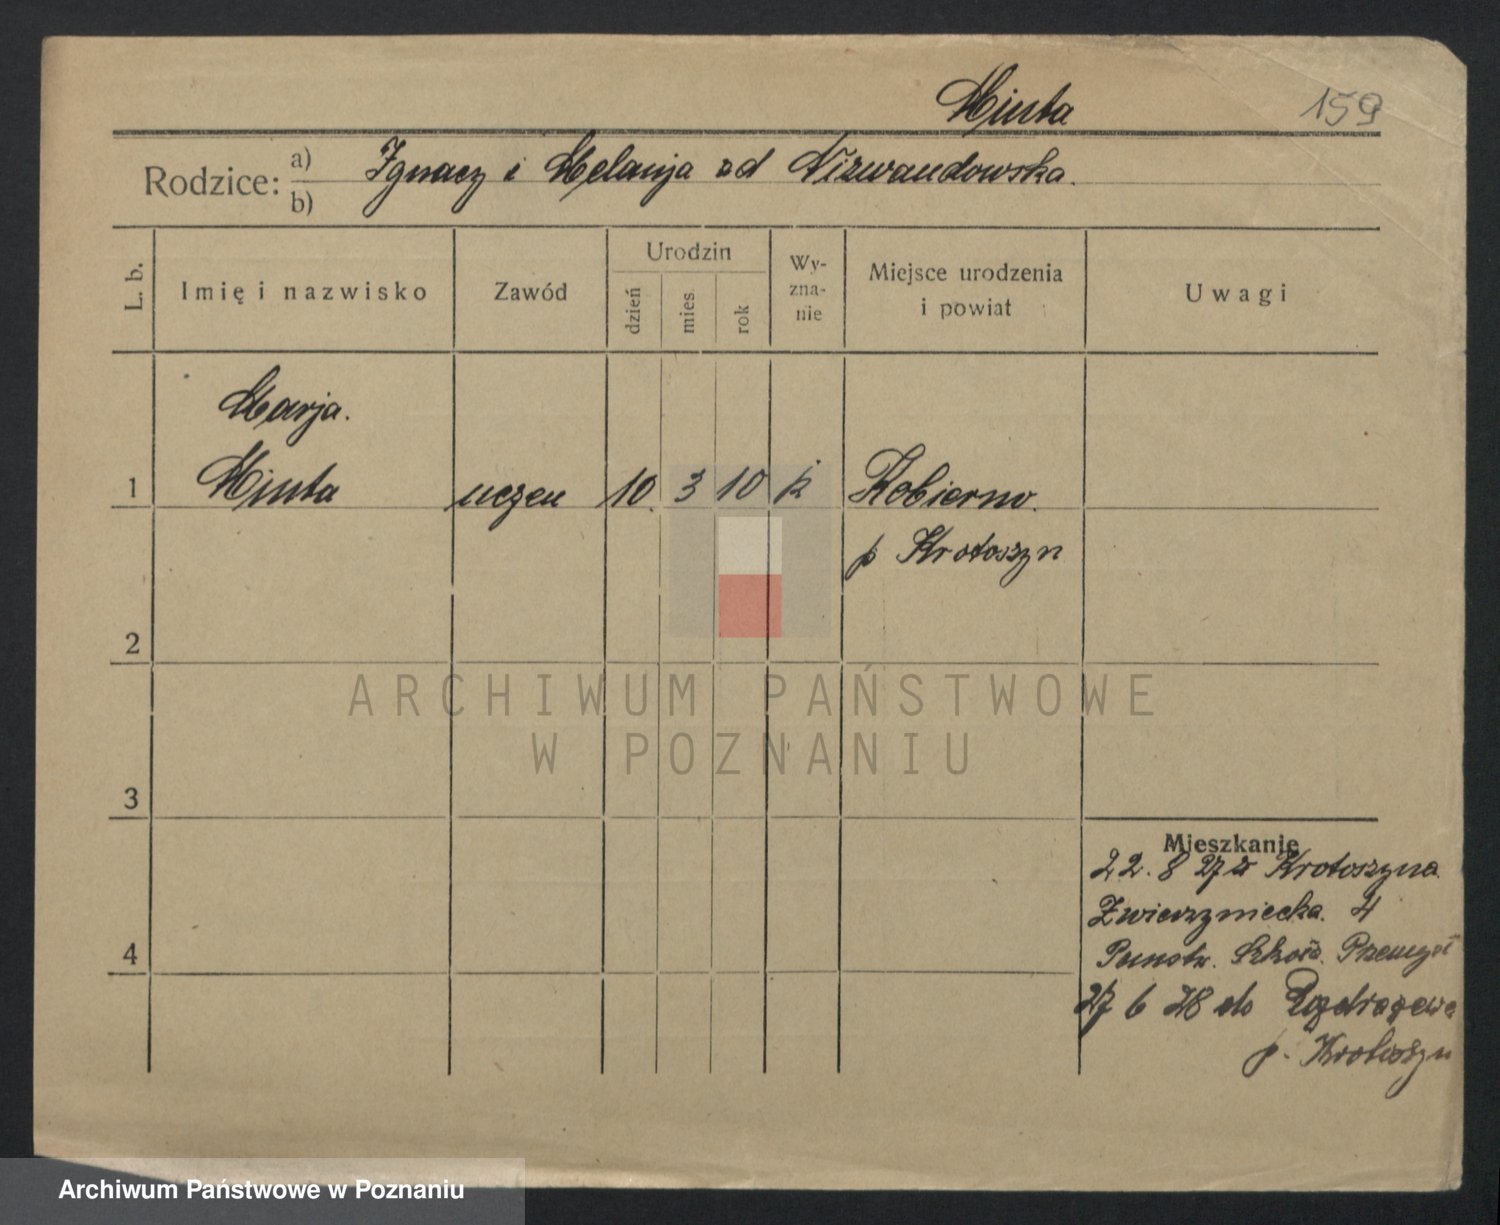 Minta
159
Rodzice: a) Ignacy i Melanja od Nizwandowska.
b)
L. b.
Imię i nazwisko
Zawód
Urodzin
dzień
mies.
rok
Wy-
zna-
nie
Miejsce urodzenia
i powiat
Uwagi
Marja.
1 Minta uczen 10. 3 10 k Kobierno.
p Krotoszyn
2
ARCHIWUM PAŃSTWOWE
W POZNANIU
3
Mieszkanie
22. 8 27 z Krotoszyna
Zwierzyniecka. 4
Szkoła. Przemysł
4
27 6 28 do
p. Krotoszyn
Archiwum Państwowe w Poznaniu